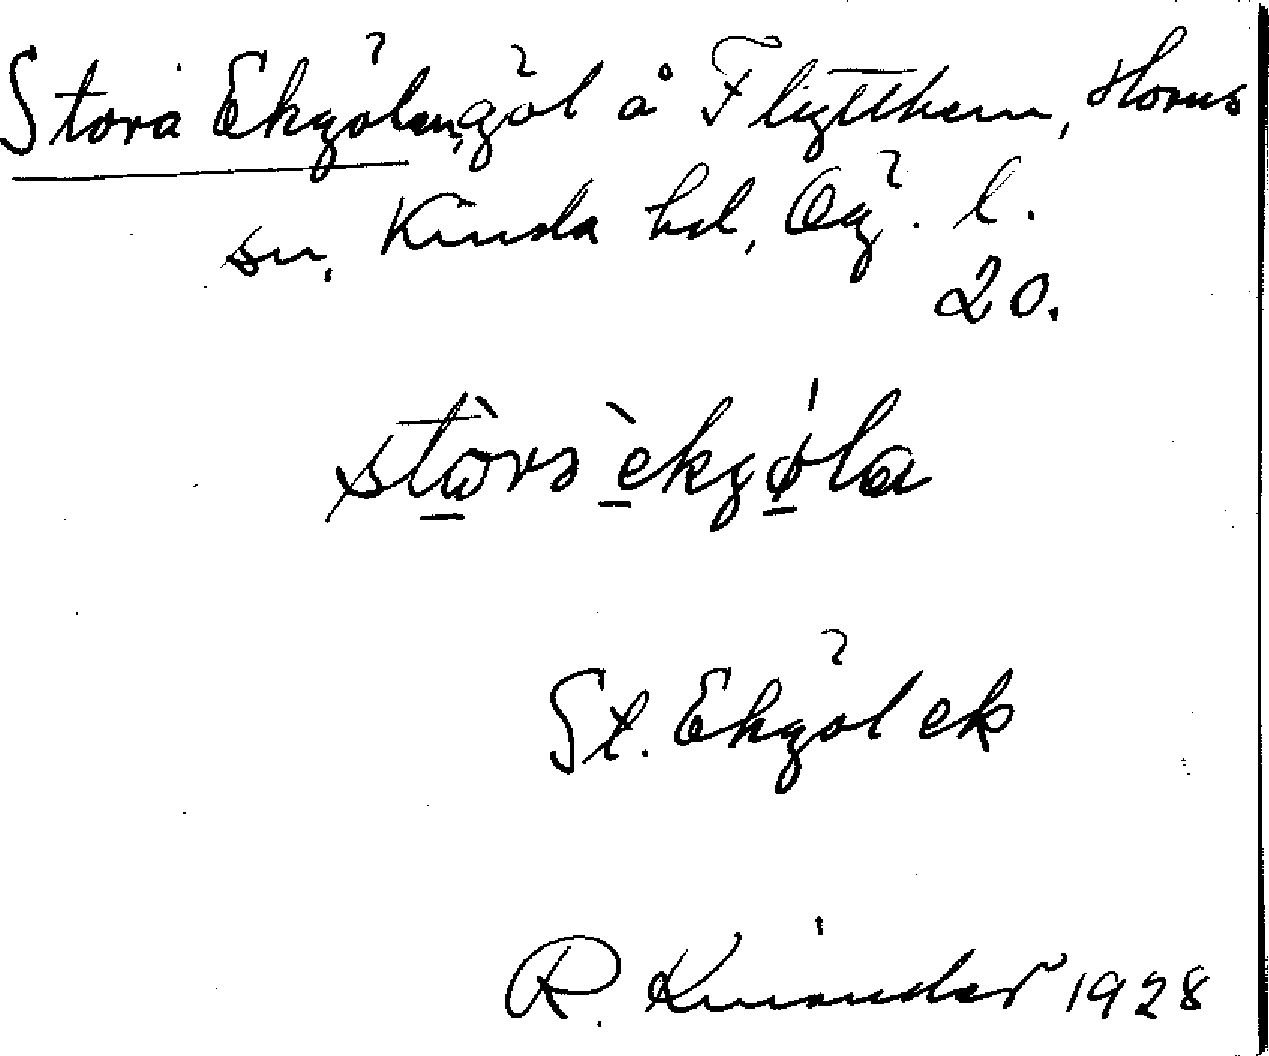 Stora Ekgölen, göl å Flytthem, Horns
sn, Kinda hd, Ög. l.
20.
stωrə ekgøla
St. Ekgöl ek
R. 1928